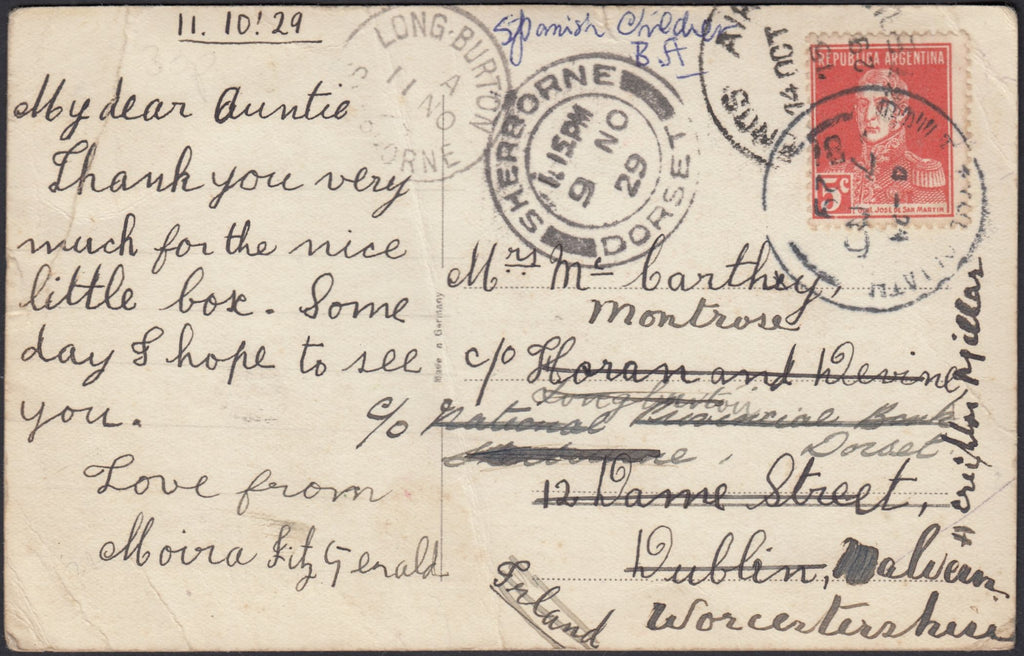 11. 10! 29
Spanish Children
B.A
My dear Auntie
Thank you very
much for the nice
little box. Some
day I hope to see
you.
Love from
Moira FitzGerald
LONG-BURTON
A
11 NO
SHERBORNE
DORSET
4.15 PM
9 NO
29
14 OCT
REPUBLICA ARGENTINA
5c
JOSÉ DE SAN MARTIN
Made in Germany
Mrs Mc Carthey
Montrose
c/o Horan and Devine
Longburton
c/o National Provincial Bank
Sherborne, Dorset
12 Dame Street,
Dublin, Malvern
Worcestershire
Irland
Millar